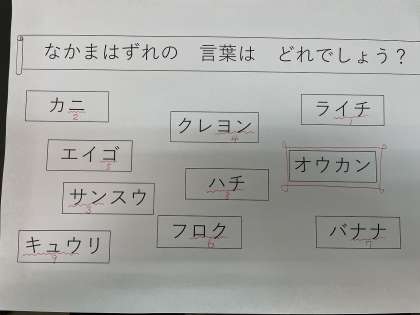 なかまはずれの 言葉は どれでしょう？
カニ
2
クレヨン
4
ライチ
1
エイゴ
5
オウカン
サンスウ
3
ハチ
8
フロク
6
バナナ
7
キュウリ
9